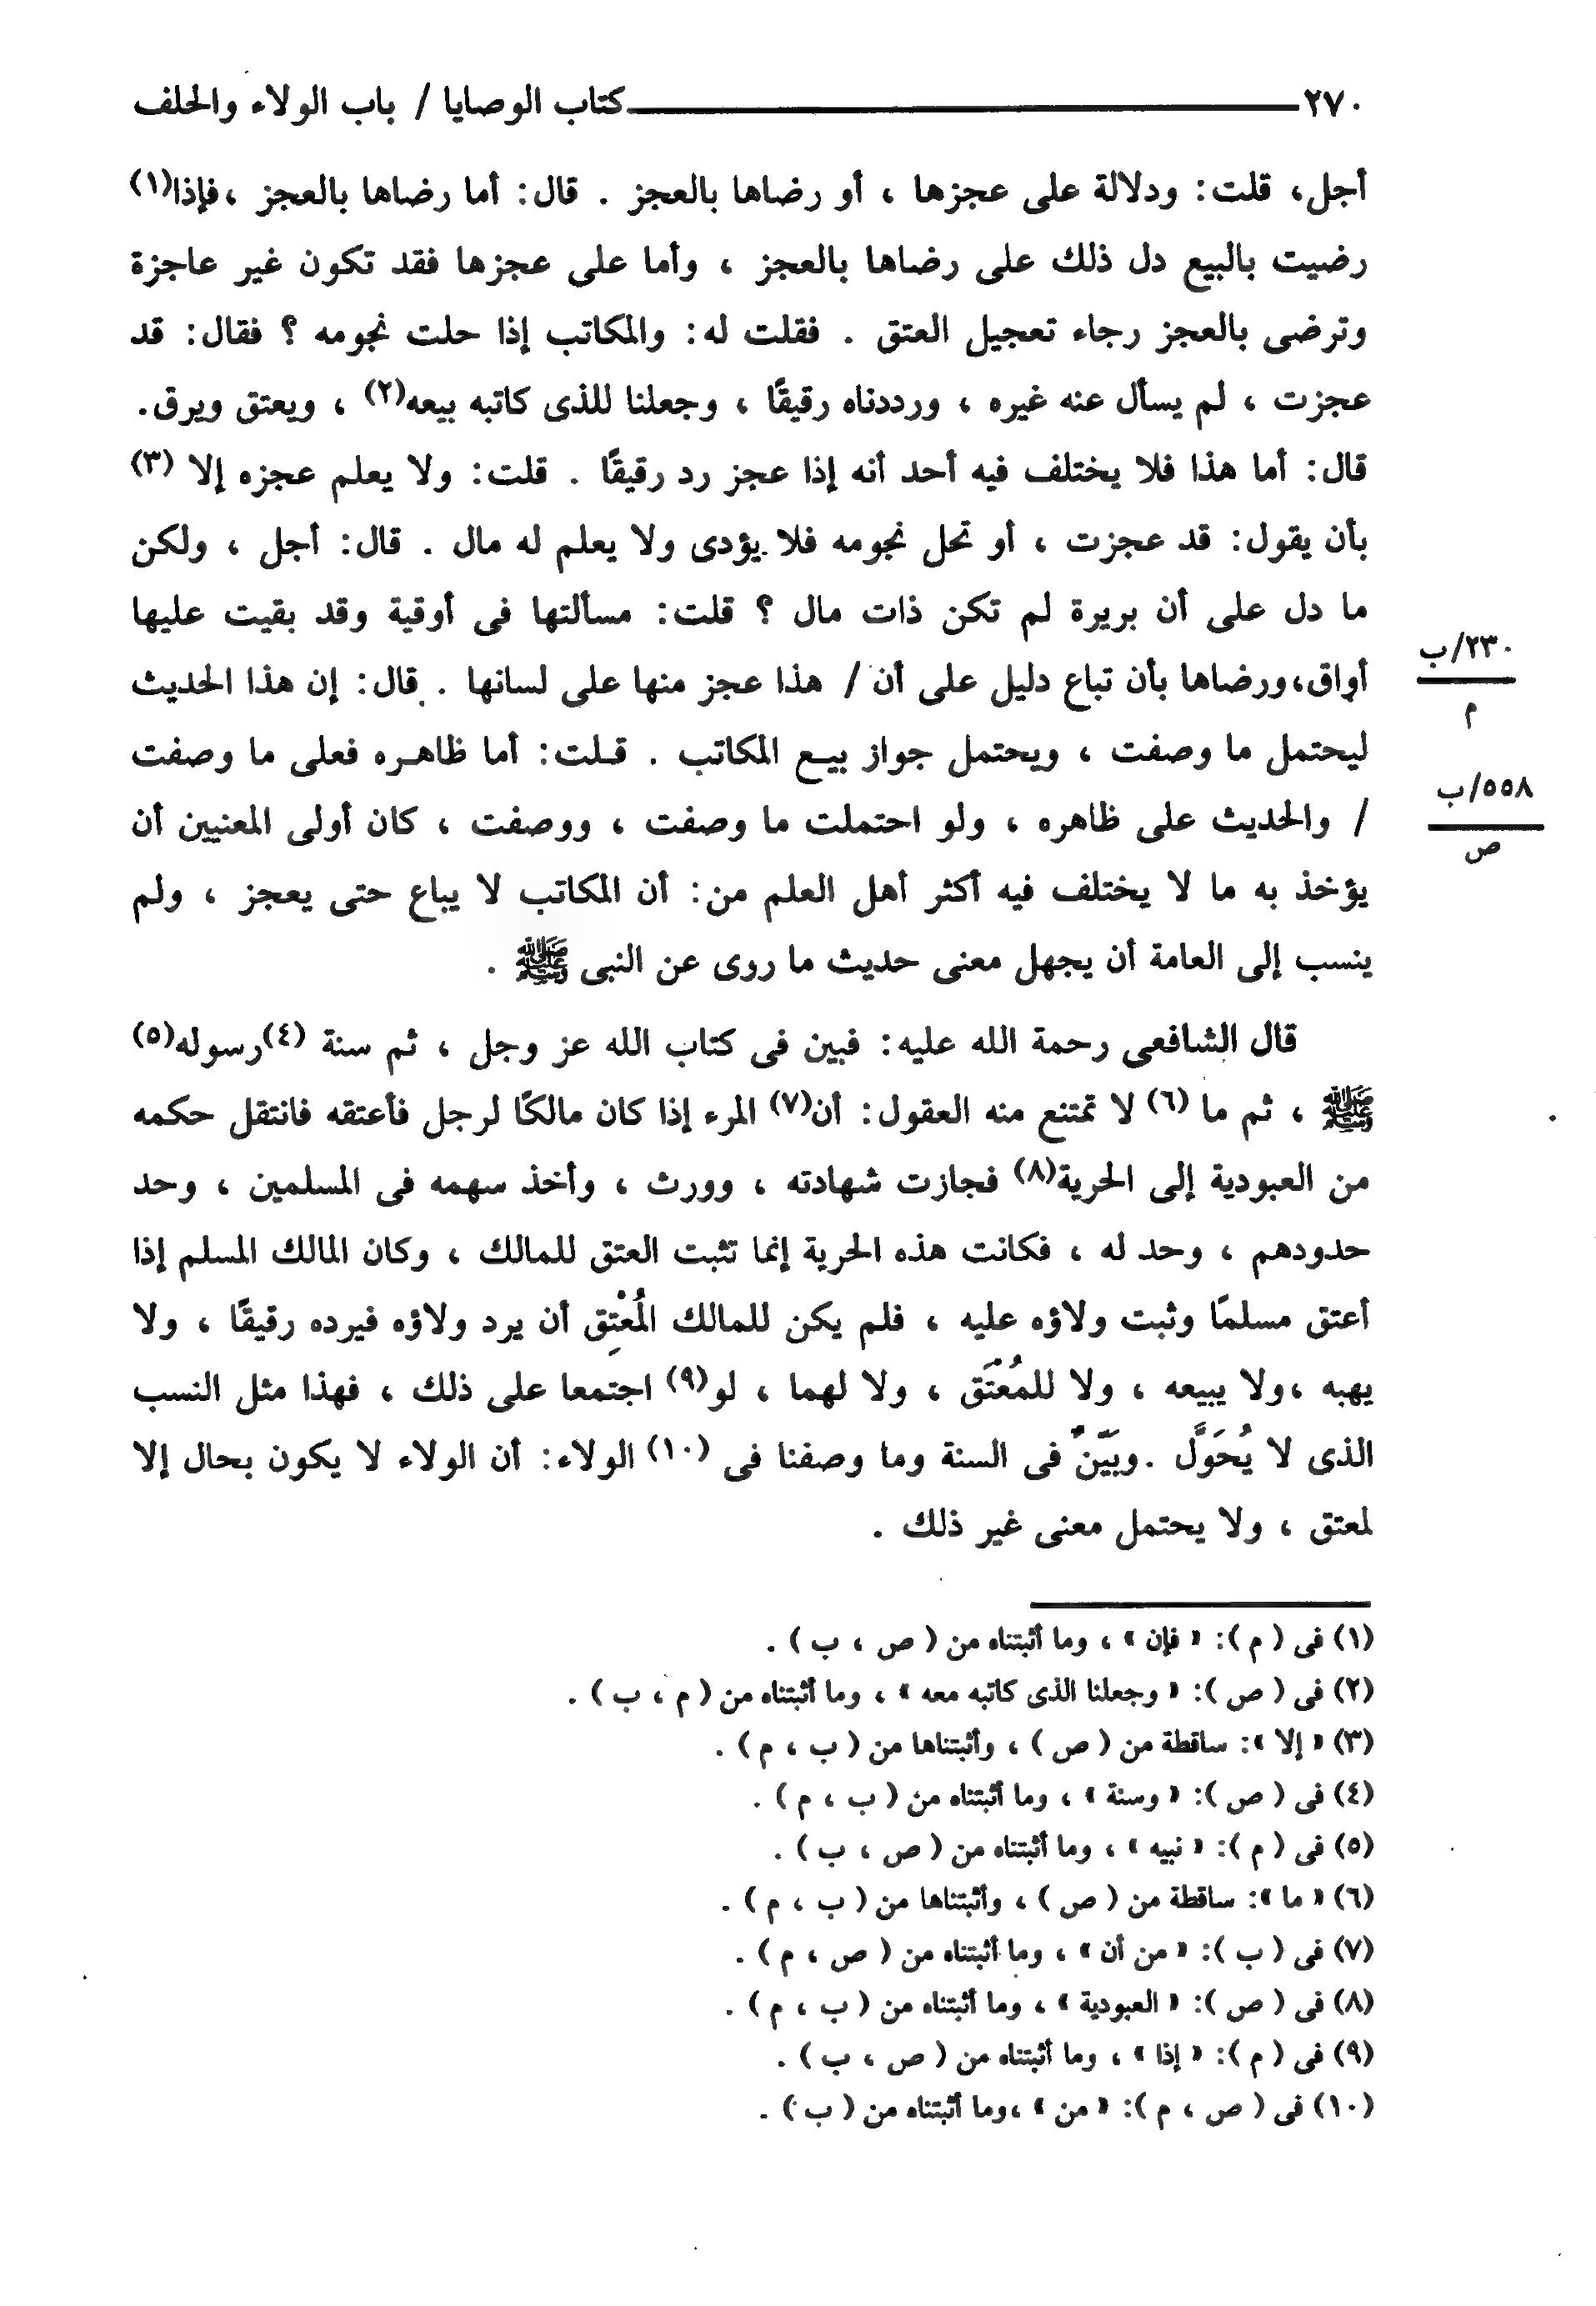 ٢٧٠ كتاب الوصايا / باب الولاء والحلف
أجل، قلت: ودلالة على عجزها ، أو رضاها بالعجز . قال: أما رضاها بالعجز ،فإذا(١)
رضيت بالبيع دل ذلك على رضاها بالعجز ، وأما على عجزها فقد تكون غير عاجزة
وترضى بالعجز رجاء تعجيل العتق . فقلت له: والمكاتب إذا حلت نجومه ؟ فقال: قد
عجزت ، لم يسأل عنه غيره ، ورددناه رقيقًا ، وجعلنا للذى كاتبه بيعه(٢) ، ويعتق ويرق.
قال: أما هذا فلا يختلف فيه أحد أنه إذا عجز رد رقيقًا . قلت: ولا يعلم عجزه إلا (٣)
بأن يقول: قد عجزت ، أو تحل نجومه فلا يؤدى ولا يعلم له مال . قال: أجل ، ولكن
ما دل على أن بريرة لم تكن ذات مال ؟ قلت: مسألتها فى أوقية وقد بقيت عليها
أواق،ورضاها بأن تباع دليل على أن / هذا عجز منها على لسانها . قال: إن هذا الحديث
٢٣٠/ب
م
ليحتمل ما وصفت ، ويحتمل جواز بيع المكاتب . قلت: أما ظاهره فعلى ما وصفت
/ والحديث على ظاهره ، ولو احتملت ما وصفت ، ووصفت ، كان أولى المعنيين أن
٥٥٨/ب
ص
يؤخذ به ما لا يختلف فيه أكثر أهل العلم من: أن المكاتب لا يباع حتى يعجز ، ولم
ينسب إلى العامة أن يجهل معنى حديث ما روى عن النبى ﷺ .
قال الشافعى رحمة الله عليه: فبين فى كتاب الله عز وجل ، ثم سنة (٤)رسوله(٥)
ﷺ ، ثم ما (٦) لا تمتنع منه العقول: أن(٧) المرء إذا كان مالكًا لرجل فأعتقه فانتقل حكمه
من العبودية إلى الحرية(٨) فجازت شهادته ، وورث ، وأخذ سهمه فى المسلمين ، وحد
حدودهم ، وحد له ، فكانت هذه الحرية إنما تثبت العتق للمالك ، وكان المالك المسلم إذا
أعتق مسلمًا وثبت ولاؤه عليه ، فلم يكن للمالك المُعْتِق أن يرد ولاؤه فيرده رقيقًا ، ولا
يهبه ،ولا يبيعه ، ولا للمُعْتَق ، ولا لهما ، لو(٩) اجتمعا على ذلك ، فهذا مثل النسب
الذى لا يُحَوَّل .وبَيِّنٌ فى السنة وما وصفنا فى (١٠) الولاء: أن الولاء لا يكون بحال إلا
لمعتق ، ولا يحتمل معنى غير ذلك .
(١) فى ( م ): « فإن » ، وما أثبتناه من ( ص ، ب ) .
(٢) فى ( ص ): « وجعلنا الذى كاتبه معه » ، وما أثبتناه من ( م ، ب ) .
(٣) « إلا »: ساقطة من ( ص ) ، وأثبتناها من ( ب ، م ) .
(٤) فى ( ص ): « وسنة » ، وما أثبتناه من ( ب ، م ) .
(٥) فى ( م ): « نبيه » ، وما أثبتناه من ( ص ، ب ) .
(٦) « ما »: ساقطة من ( ص ) ، وأثبتناها من ( ب ، م ) .
(٧) فى ( ب ): « من أن » ، وما أثبتناه من ( ص ، م ) .
(٨) فى ( ص ): « العبودية » ، وما أثبتناه من ( ب ، م ) .
(٩) فى ( م ): « إذا » ، وما أثبتناه من ( ص ، ب ) .
(١٠) فى ( ص ، م ): « من » ،وما أثبتناه من ( ب ) .